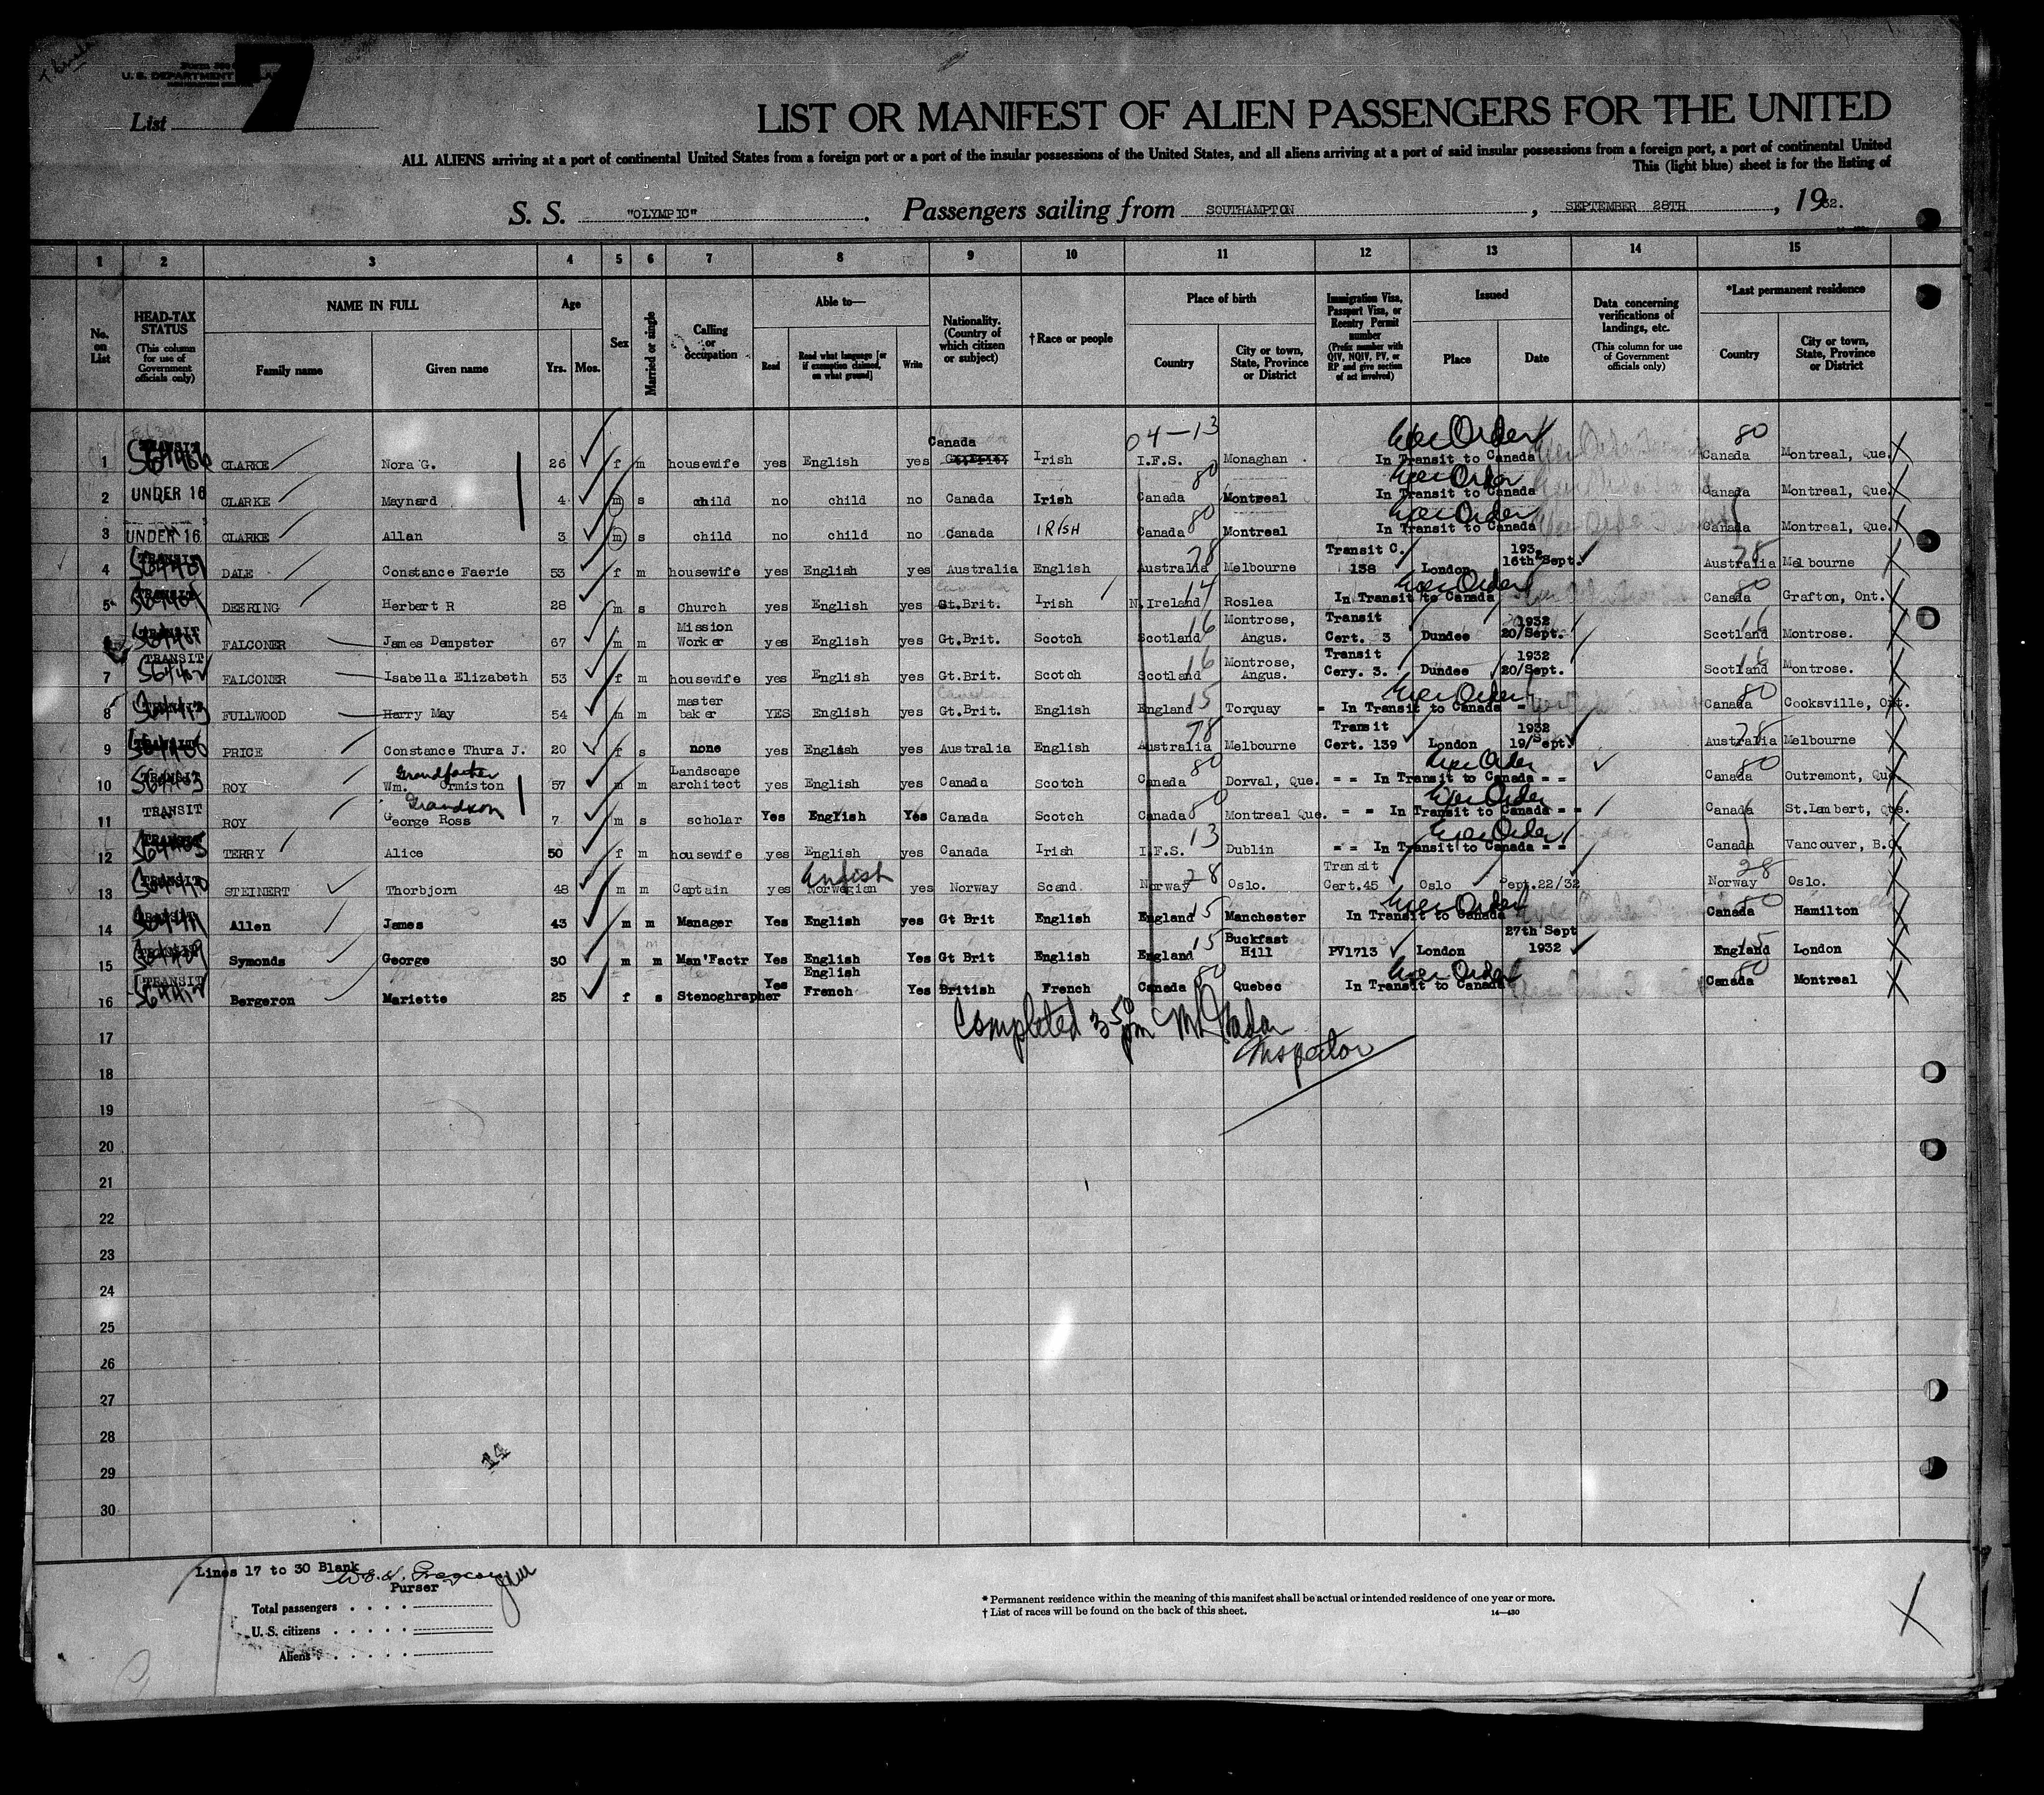 7
U. S. DEPARTMENT
List
LIST OR MANIFEST OF ALIEN PASSENGERS FOR THE UNITED
ALL ALIENS arriving at a port of continental United States from a foreign port or a port of the insular possessions of the United States, and all aliens arriving at a port of said insular possessions from a foreign port, a port of continental United
This (light blue) sheet is for the listing of
S. S. "OLYMPIC". Passengers sailing from SOUTHAMPTON, SEPTEMBER 28TH, 1932.
1 2 3 4 5 6 7 8 9 10 11 12 13 14 15
No. on List
HEAD-TAX STATUS (This column for use of Government officials only)
NAME IN FULL
Family name
Given name
Age
Yrs. Mos.
Sex
Married or single
Calling or occupation
Able to—
Read
Read what language [or if exemption claimed, on what ground]
Write
Nationality. (Country of which citizen or subject)
† Race or people
Place of birth
Country
City or town, State, Province or District
Immigration Visa, Passport Visa, or Reentry Permit number (Prefix number with QIV, NQIV, PV, or RP and give section of act involved)
Issued
Place
Date
Data concerning verifications of landings, etc. (This column for use of Government officials only)
*Last permanent residence
Country
City or town, State, Province or District
1 TRANSIT CLARKE Nora G. 26 f m housewife yes English yes Canada Irish 04-13 I.F.S. Monaghan In Transit to Canada 80 Canada Montreal, Que.
2 UNDER 16 CLARKE Maynard 4 m s child no child no Canada Irish Canada 80 Montreal In Transit to Canada Canada Montreal, Que.
3 UNDER 16 CLARKE Allan 3 m s child no child no Canada IRISH Canada 80 Montreal In Transit to Canada Canada Montreal, Que.
4 TRANSIT DALE Constance Faerie 53 f m housewife yes English yes Australia English Australia 78 Melbourne Transit C. 138 London 1932 16th Sept. Australia 78 Melbourne
5 TRANSIT DEERING Herbert R 28 m s Church Mission Worker yes English yes Gt.Brit. Irish N.Ireland 14 Roslea In Transit to Canada Canada 80 Grafton, Ont.
6 TRANSIT FALCONER James Dempster 67 m m yes English yes Gt.Brit. Scotch Scotland 16 Montrose, Angus. Transit Cert. 3 Dundee 1932 20/Sept. Scotland 16 Montrose.
7 TRANSIT FALCONER Isabella Elizabeth 53 f m housewife yes English yes Gt.Brit. Scotch Scotland 16 Montrose, Angus. Transit Cery. 3. Dundee 1932 20/Sept. Scotland 16 Montrose.
8 TRANSIT FULLWOOD Harry May 54 m m master baker YES English yes Gt.Brit. English England 15 Torquay In Transit to Canada Canada 80 Cooksville, Ont.
9 TRANSIT PRICE Constance Thura J. 20 f s none yes English yes Australia English Australia 78 Melbourne Transit Cert. 139 London 1932 19/Sept. Australia 78 Melbourne
10 TRANSIT ROY Grandfather Wm. Ormiston 57 m m Landscape architect yes English yes Canada Scotch Canada 80 Dorval, Que. = = In Transit to Canada = = Canada 80 Outremont, Que
11 TRANSIT ROY Grandson George Ross 7 m s scholar Yes English Yes Canada Scotch Canada 80 Montreal Que. = = In Transit to Canada = = Canada St.Lambert, Que.
12 TRANSIT TERRY Alice 50 f m housewife yes English yes Canada Irish I.F.S. 13 Dublin = = In Transit to Canada = = Canada Vancouver, B.C.
13 TRANSIT STEINERT Thorbjorn 48 m m Captain yes English Norwegian yes Norway Scand. Norway 28 Oslo. Transit Cert.45 Oslo Sept.22/32 Norway 28 Oslo.
14 TRANSIT Allen James 43 m m Manager Yes English yes Gt Brit English England 15 Manchester In Transit to Canada Canada 80 Hamilton
15 TRANSIT Symonds George 30 m m Man'Factr Yes English Yes Gt Brit English England 15 Buckfast Hill PV1713 London 27th Sept 1932 England 15 London
16 TRANSIT Bergeron Mariette 25 f s Stenoghrapher Yes English French Yes British French Canada 80 Quebec In Transit to Canada Canada 80 Montreal
Completed 3 50 pm
Inspector
17
18
19
20
21
22
23
24
25
26
27
28
29
30
14
Lines 17 to 30 Blank
Purser
Total passengers
U. S. citizens
Aliens
* Permanent residence within the meaning of this manifest shall be actual or intended residence of one year or more.
† List of races will be found on the back of this sheet.
14—430